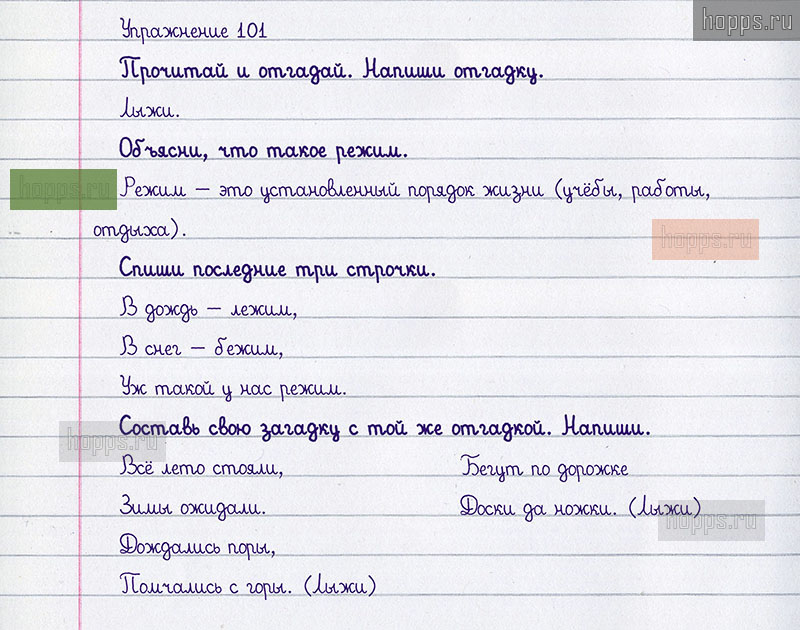 hopps.ru
Упражнение 101
Прочитай и отгадай. Напиши отгадку.
Лыжи.
Объясни, что такое режим.
hopps.ru
Режим – это установленный порядок жизни (учёбы, работы,
отдыха).
hopps.ru
Спиши последние три строчки.
В дождь – лежим,
В снег – бежим,
Уж такой у нас режим.
Составь свою загадку с той же отгадкой. Напиши.
hopps.ru
Всё лето стояли,
Зимы ожидали.
Дождались поры,
Помчались с горы. (Лыжи)
Бегут по дорожке
Доски да ножки. (Лыжи)
hopps.ru